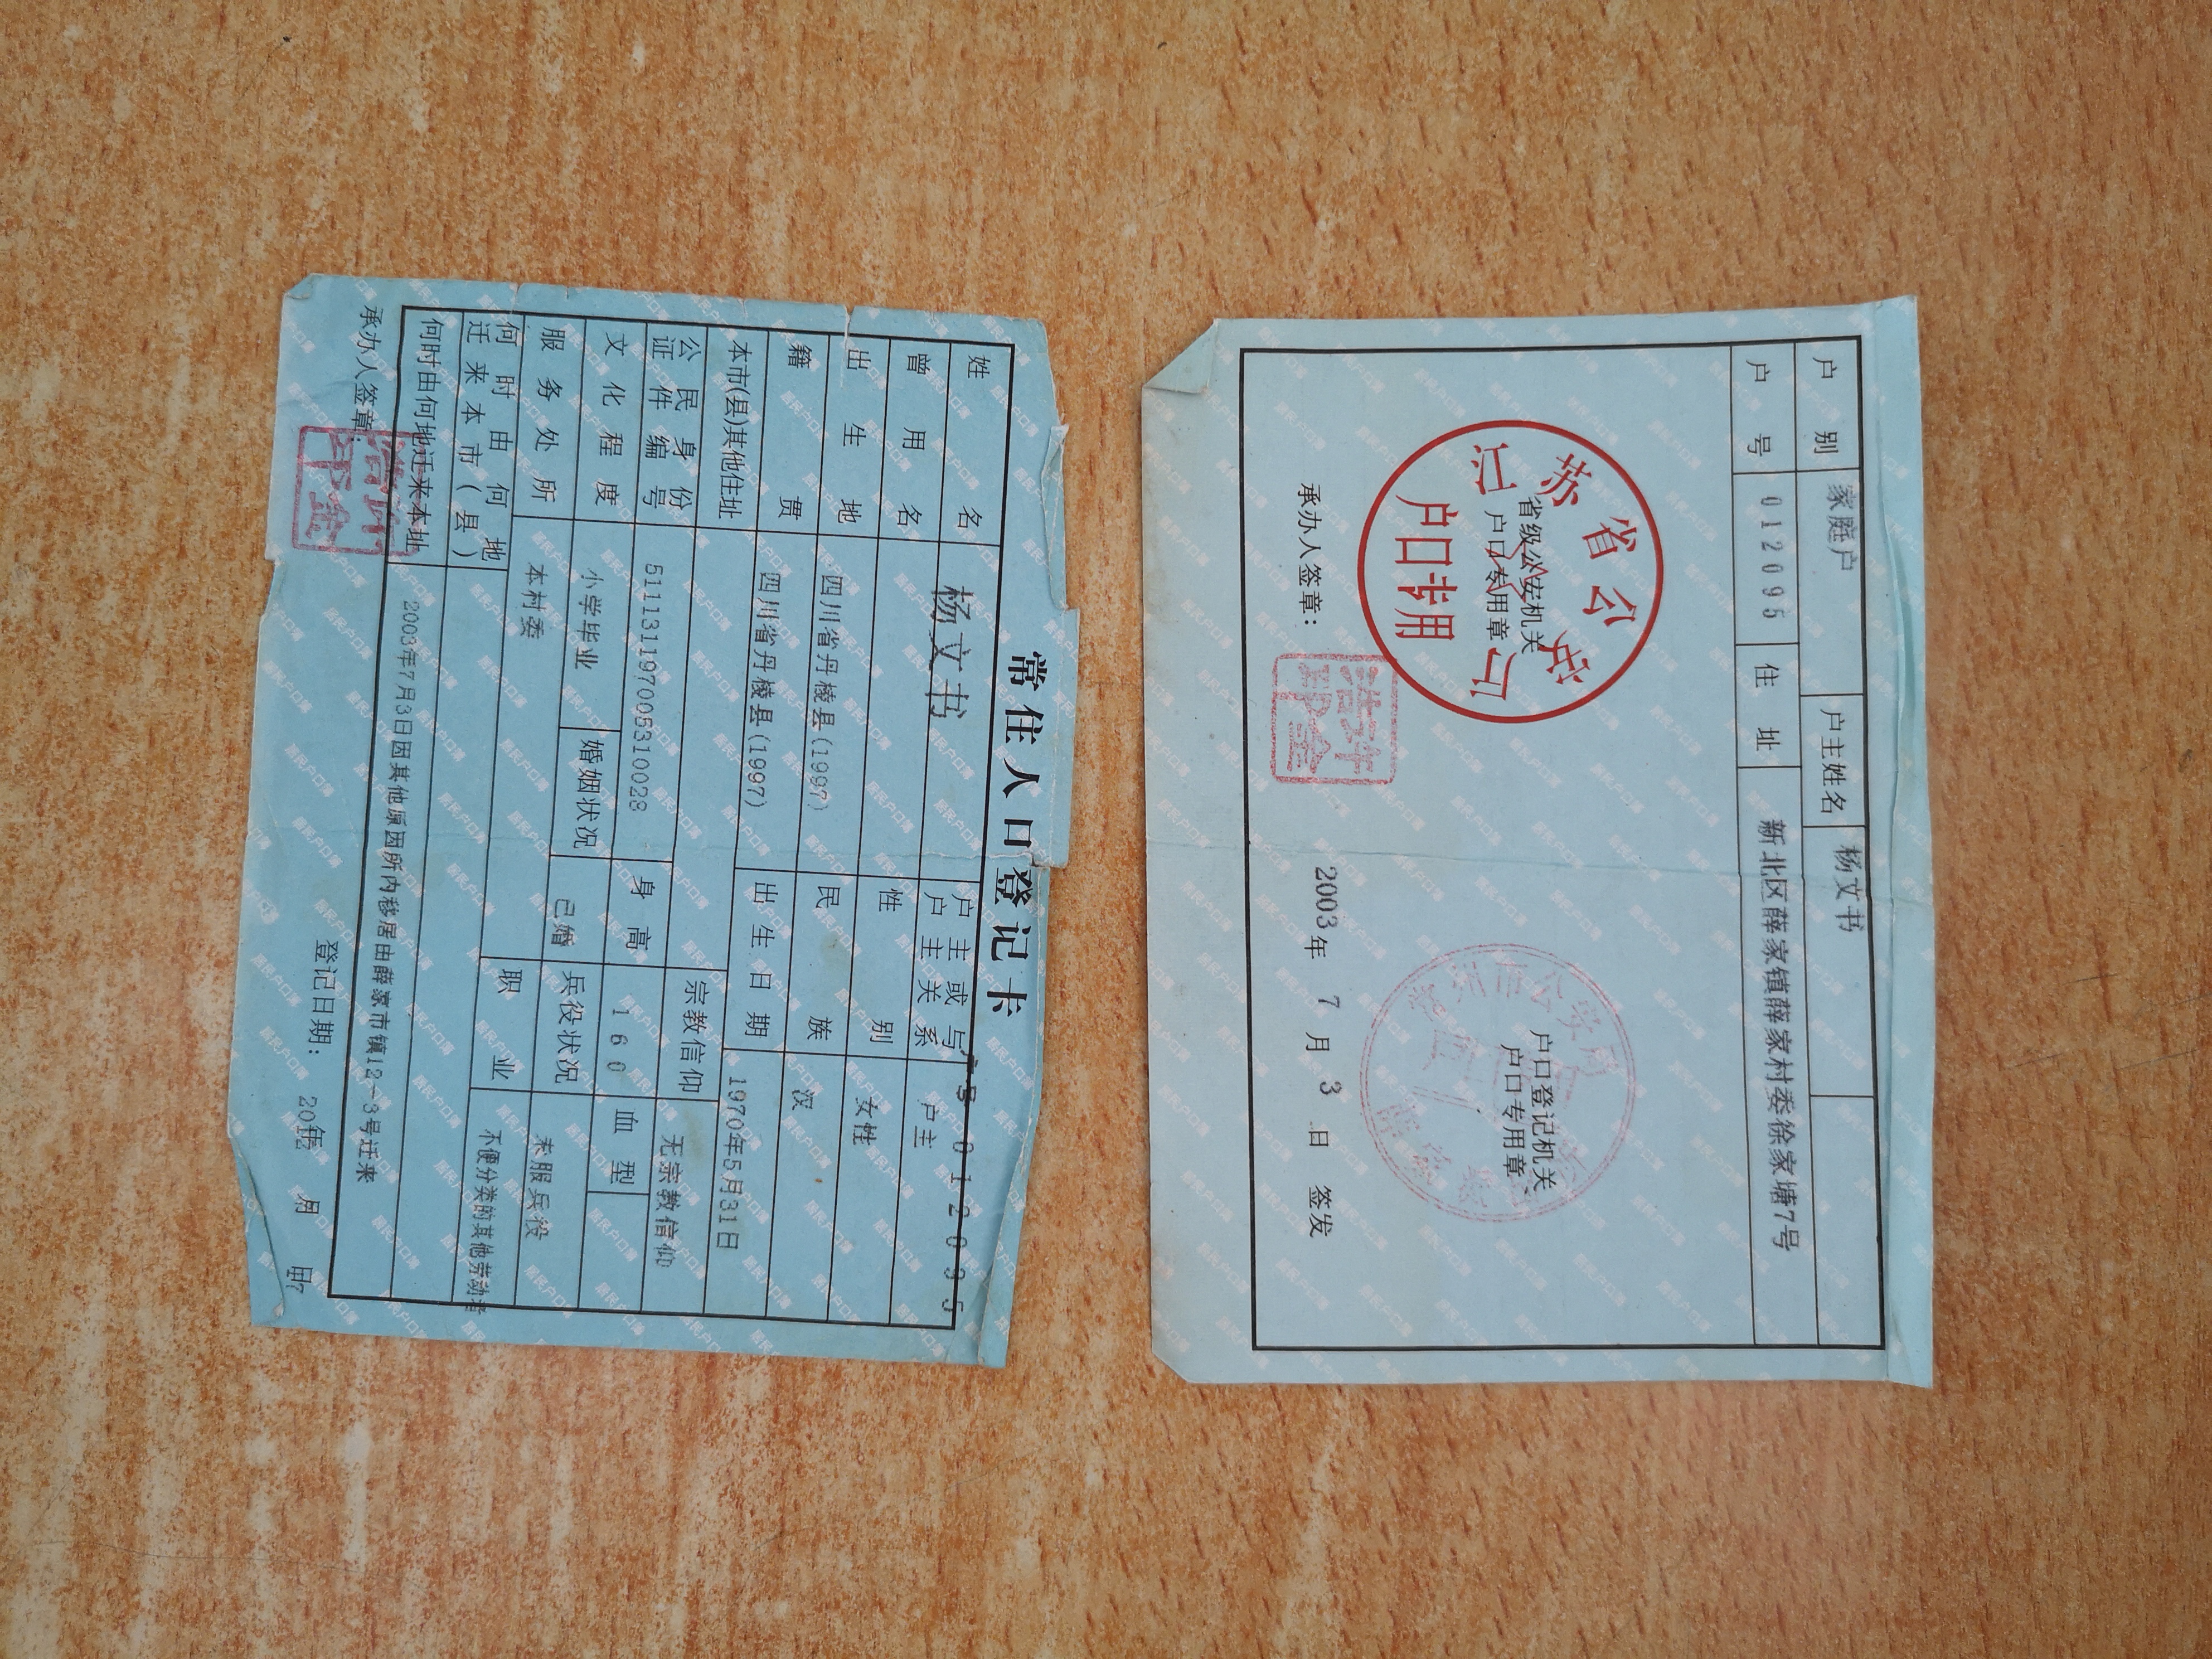 户别 家庭户 户主姓名 杨文书
户号 012095 住址 新北区薛家镇薛家村委徐家塘7号
江苏省公安厅
省级公安机关
户口专用章
户口专用
户口登记机关
户口专用章
承办人签章：
2003年 7 月 3 日 签发
常住人口登记卡
户号 012095
姓名 杨文书 户主或与户主关系 户主
曾用名 性别 女性
出生地 四川省丹棱县(1997) 民族 汉
籍贯 四川省丹棱县(1997) 出生日期 1970年5月31日
本市(县)其他住址 宗教信仰 无宗教信仰
公民身份证件编号 511131197005310028 身高 160 血型
文化程度 小学毕业 婚姻状况 已婚 兵役状况 未服兵役
服务处所 本村委 职业 不便分类的其他劳动者
何时由何地迁来本市(县)
何时由何地迁来本址 2003年7月3日因其他原因所内移居由薛家市镇12-3号迁来
承办人签章： 登记日期：